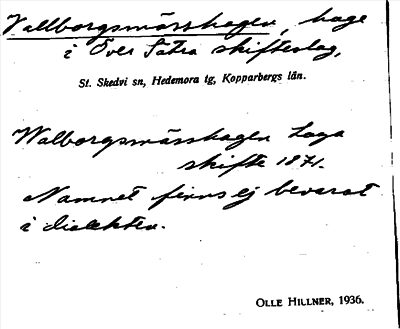 Vallborgsmässhagen, hage
i Över Sätra skifteslag,
St. Skedvi sn, Hedemora tg, Kopparbergs län.
Walborgsmässhagen Laga
skifte 1871.
Namnet finns ej bevarat
i dialekten.
OLLE HILLNER, 1936.